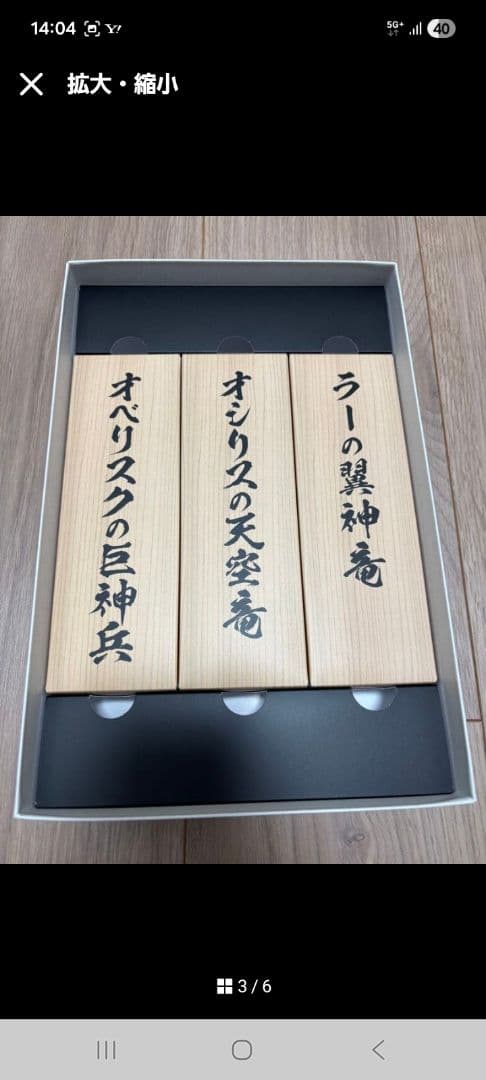 14:04
Y!
5G+
40
拡大・縮小
ラーの翼神竜
オシリスの天空竜
オベリスクの巨神兵
3 / 6